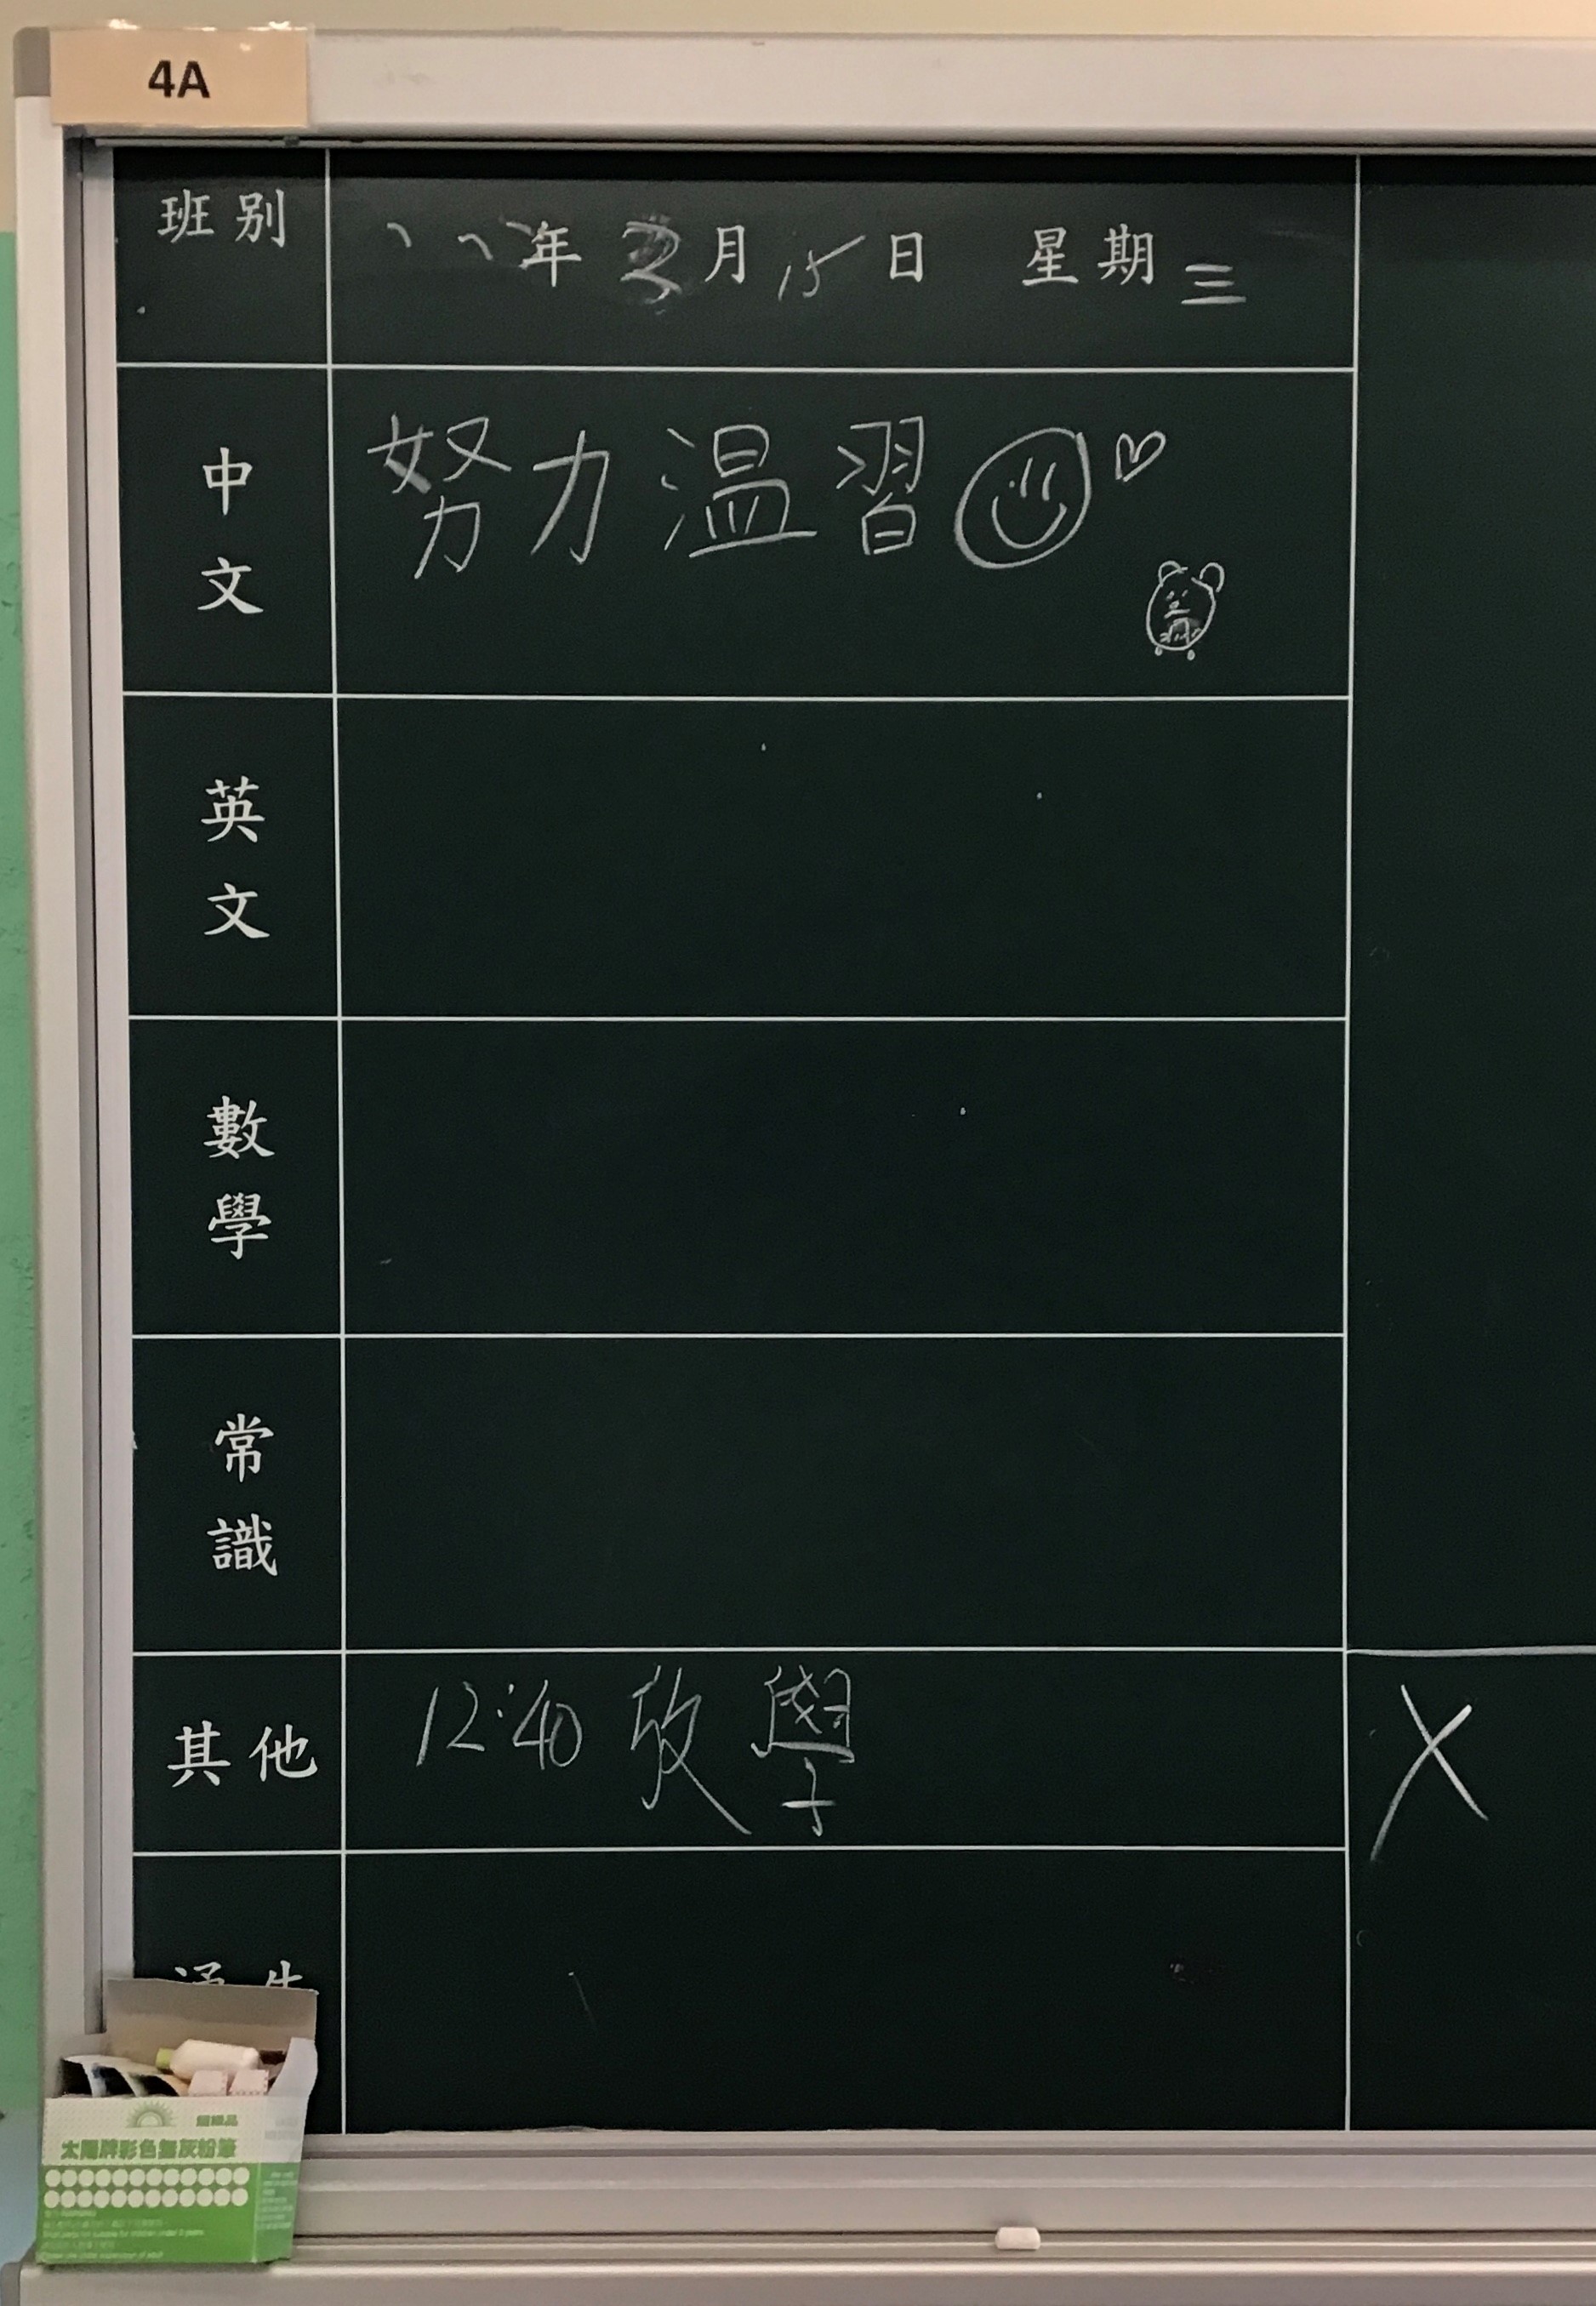 4A
班別
年 月 15 日 星期 三
中文
努力温習
英文
數學
常識
其他
12:40 放學
通告
太陽牌彩色無灰粉筆